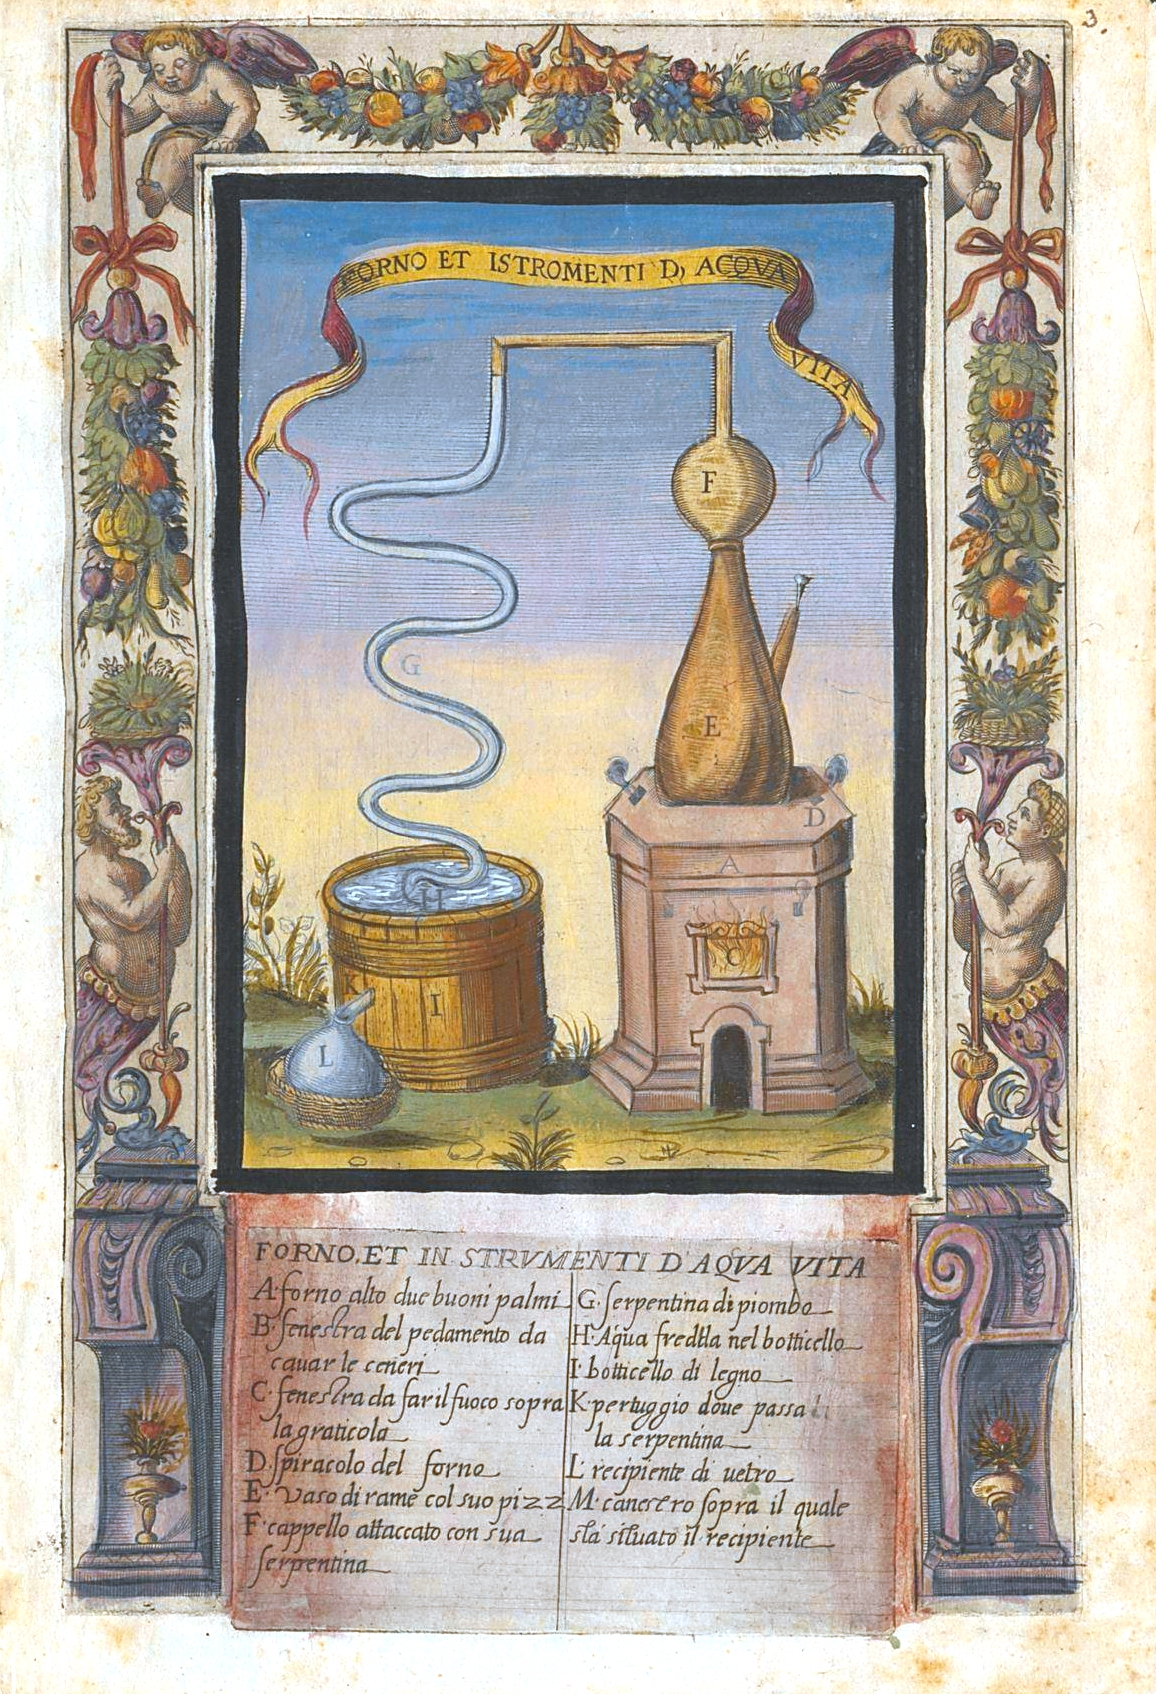 3.
FORNO ET ISTROMENTI D, ACQVA
VITA
F
G
E
D
A
H
C
K
I
L
FORNO, ET IN STRVMENTI D'AQVA VITA
A·forno alto due buoni palmi
B·fenestra del pedamento da
cauar le ceneri
C·fenestra da far il fuoco sopra
la graticola
D·spiracolo del forno
E· Vaso di rame col suo pizz
F·cappello attaccato con sua
serpentina
G·serpentina di piombo
H·Aqua fredda nel botticello
I·botticello di legno
K·pertuggio doue passa
la serpentina
L· recipiente di uetro
M·canestro sopra il quale
stà situato il recipiente